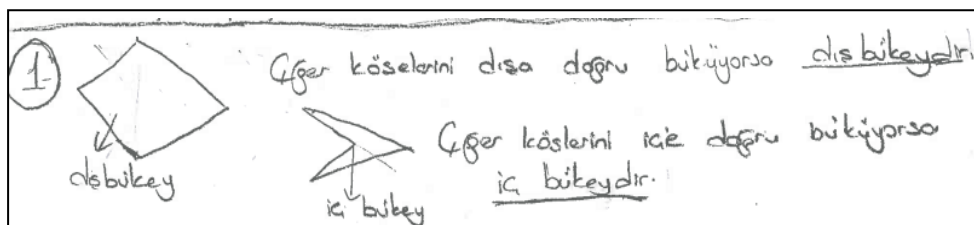 1
Eğer köselerini dısa doğru büküyorsa dısbükeydir.
dısbükey
Eğer köslerini içe doğru büküyorsa
iç bükeydir.
iç bükey